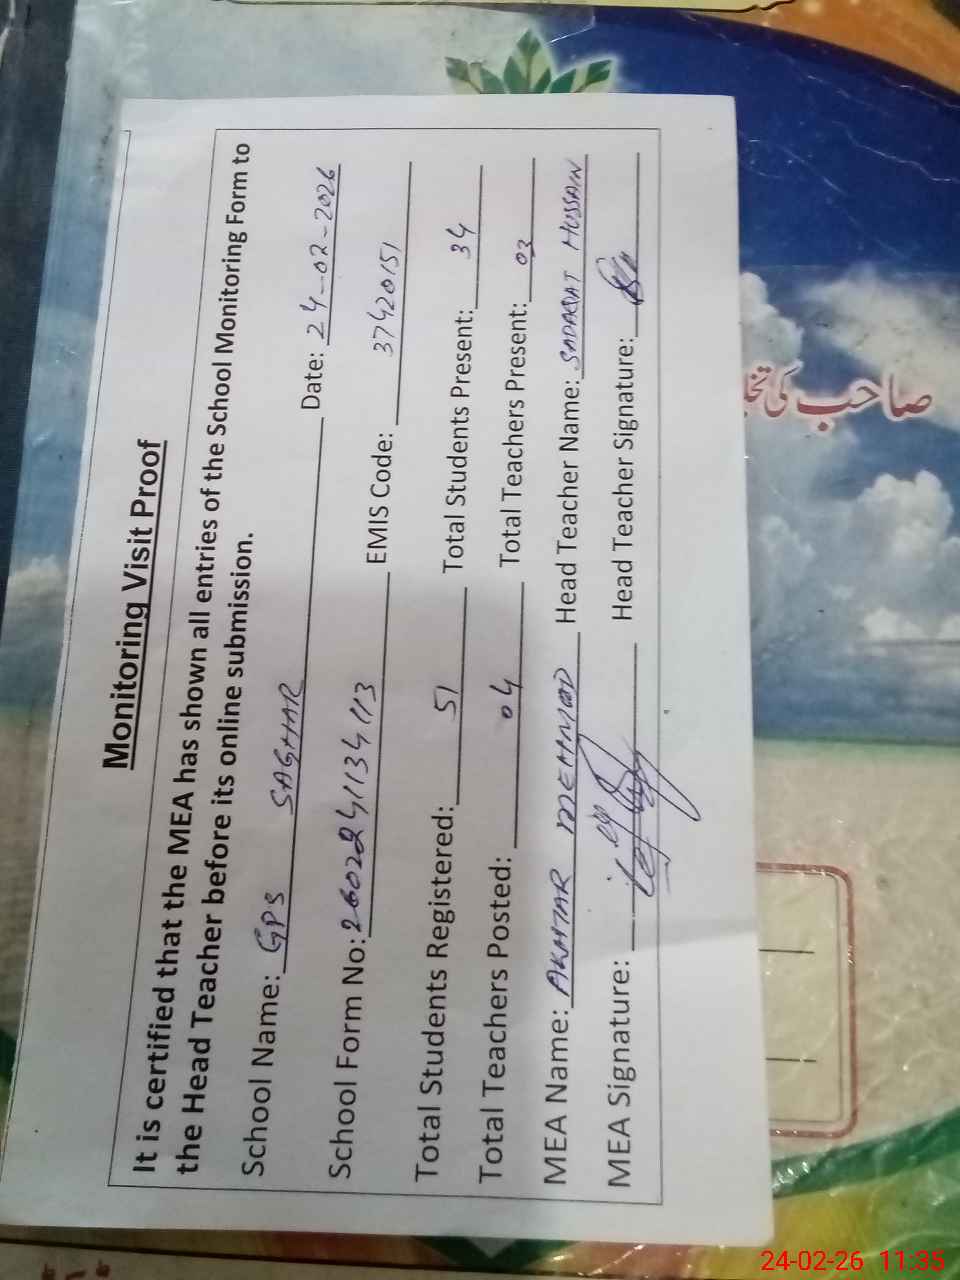 Monitoring Visit Proof
It is certified that the MEA has shown all entries of the School Monitoring Form to
the Head Teacher before its online submission.
School Name: GPS SAGHAR Date: 24-02-2026
School Form No: 26022411341113 EMIS Code: 37420151
Total Students Registered: 51 Total Students Present: 34
Total Teachers Posted: 04 Total Teachers Present: 03
MEA Name: AKHTAR MEHMOOD Head Teacher Name: SADAQAT HUSSAIN
MEA Signature: Head Teacher Signature:
صاحب کی
24-02-26 11:35